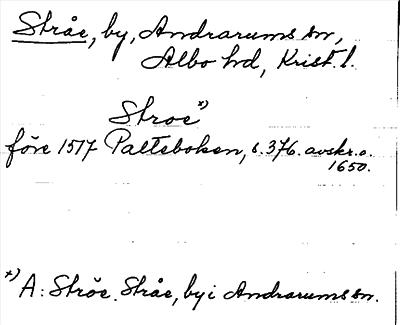 Stråe, by, Andrarums sn,
Albo hd, Krist. l.
Stroe *)
före 1517 Palteboken, s. 376. avskr. o.
1650.
*) A: Ströe. Stråe, by i Andrarums sn.